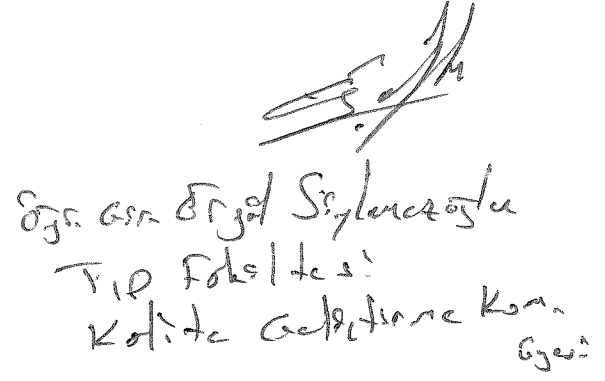 Öğr. Gör. Örgül Söylemezoğlu
Tıp Fakültesi
Kalite Geliştirme Kom.
Üyesi